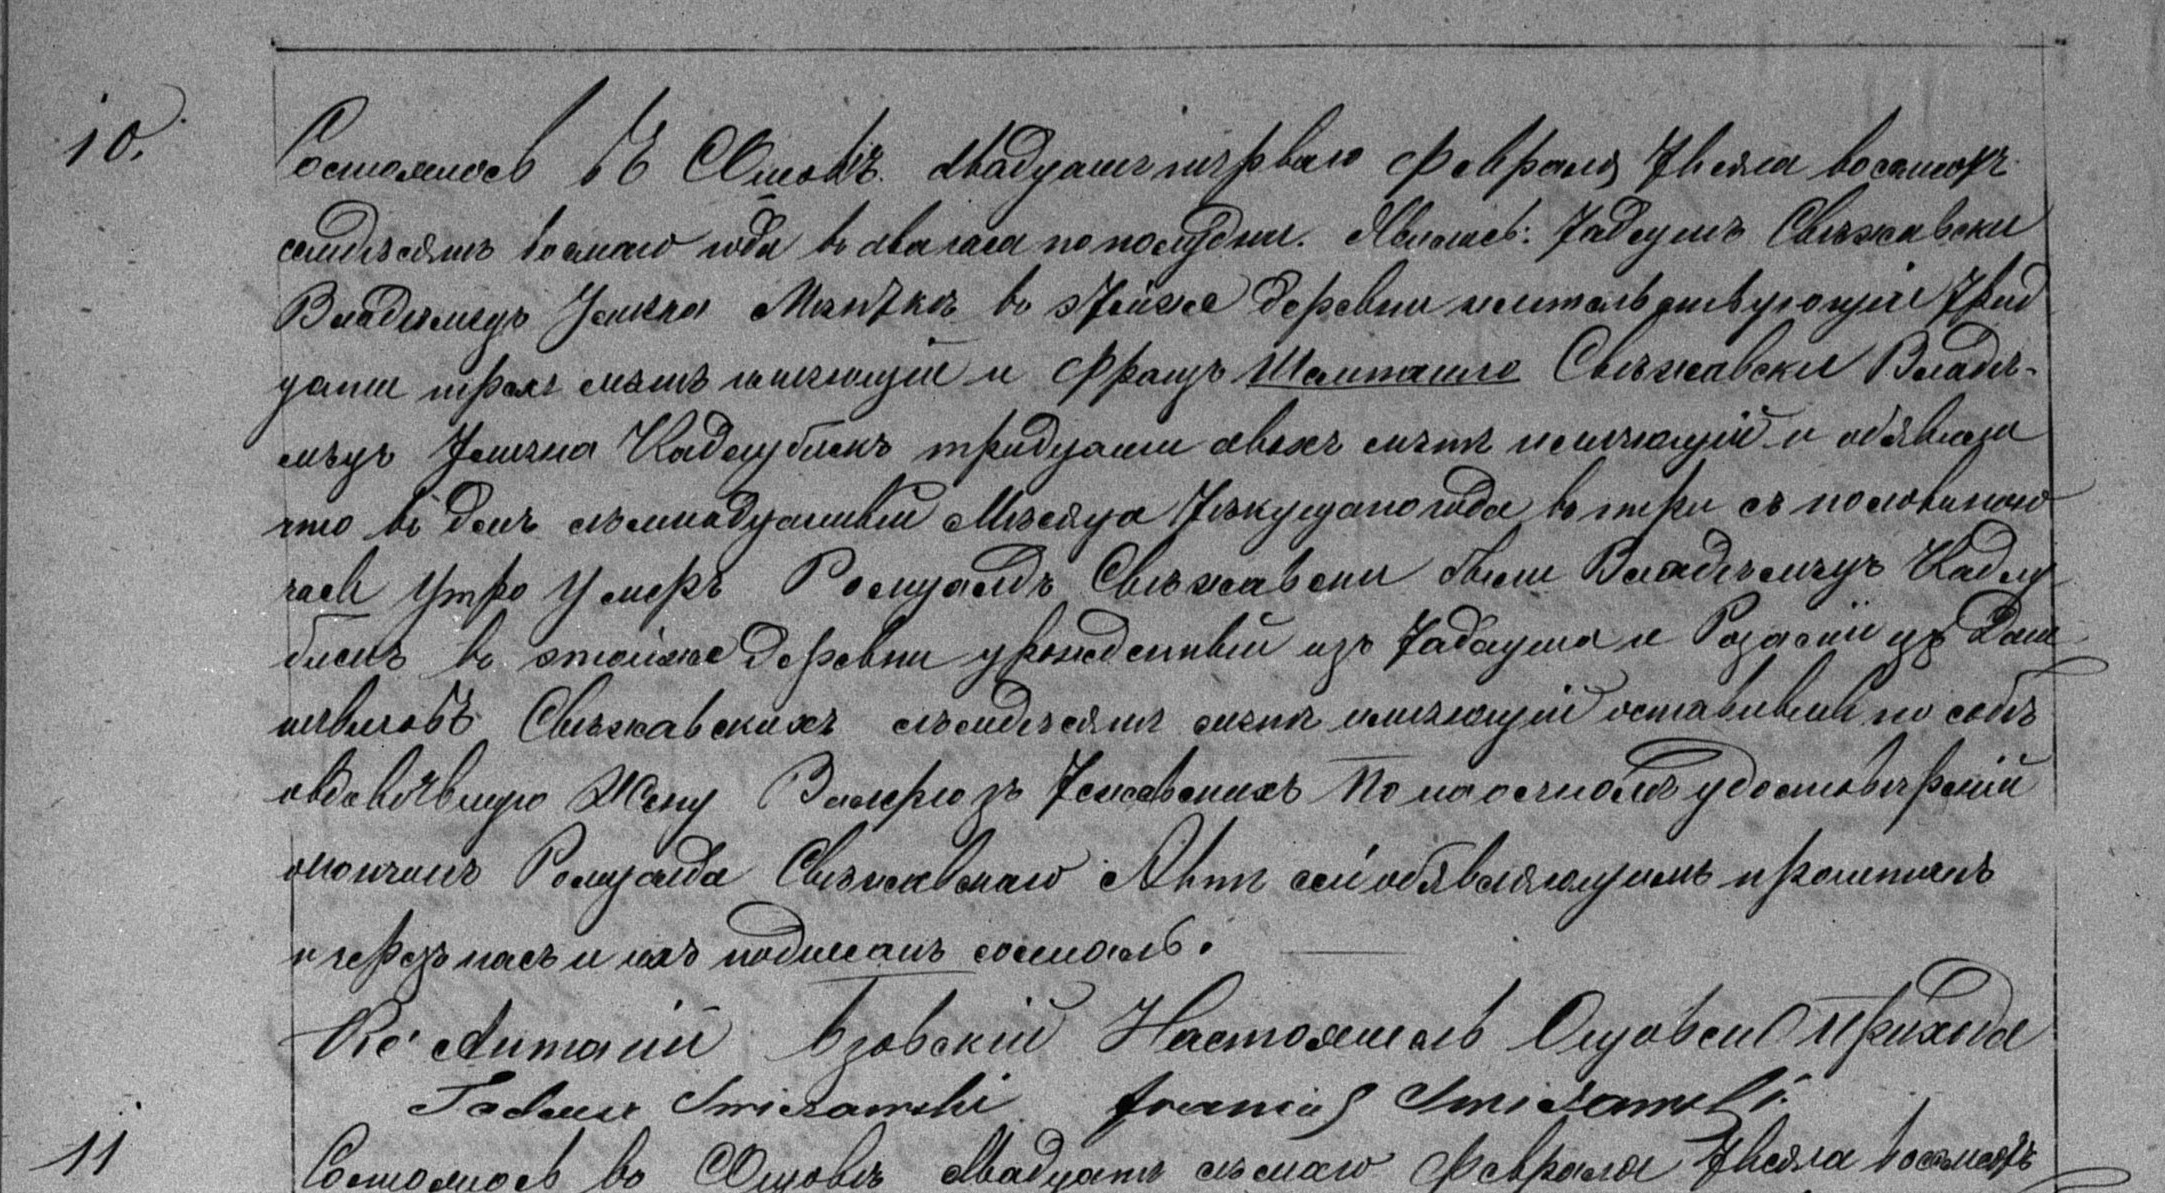 10.
Состоялось въ Оцовѣ двадцать перваго Февраля Тысяча восемсотъ
семдѣсятъ восмаго года въ два часа по полудни. Явились: Тадеушъ Смѣжавски
Владѣлецъ Имѣнa въ этойже деревни жительствующій Трид
цати трехъ лѣтъ имѣющій и Францъ Смѣжавски Владѣ-
лецъ Имѣна Кадлубискъ тридцати двохъ лѣтъ имѣющій и объявили
что въ день семнадцатый Мѣсяца Тѣкущаго года въ три съ половиною
часы утро умеръ Ромуальдъ Смѣжавски были Владѣлецъ Кадлу
бискъ въ этойже деревни урожденный изъ Тадеуша и Розалии изъ
Смѣжавскихъ сѣмдѣсятъ лѣтъ имѣющій оставивши по себѣ
овдовѣвшую Жену Валерю зъ По наочномъ удостовѣреніи
о кончинѣ Ромуальда Смѣжавскаго Актъ сей объявляющимъ прочитанъ
и черезъ насъ и ихъ подписанъ состалъ.
Кс. Антоній Настоятель Оцовски Прихода
Tadeusz Smiżawski Francis Smiżawski
11
Состоялось въ Оцовѣ Двадцать сѣмаго Февраля Тысяча восемсотъ